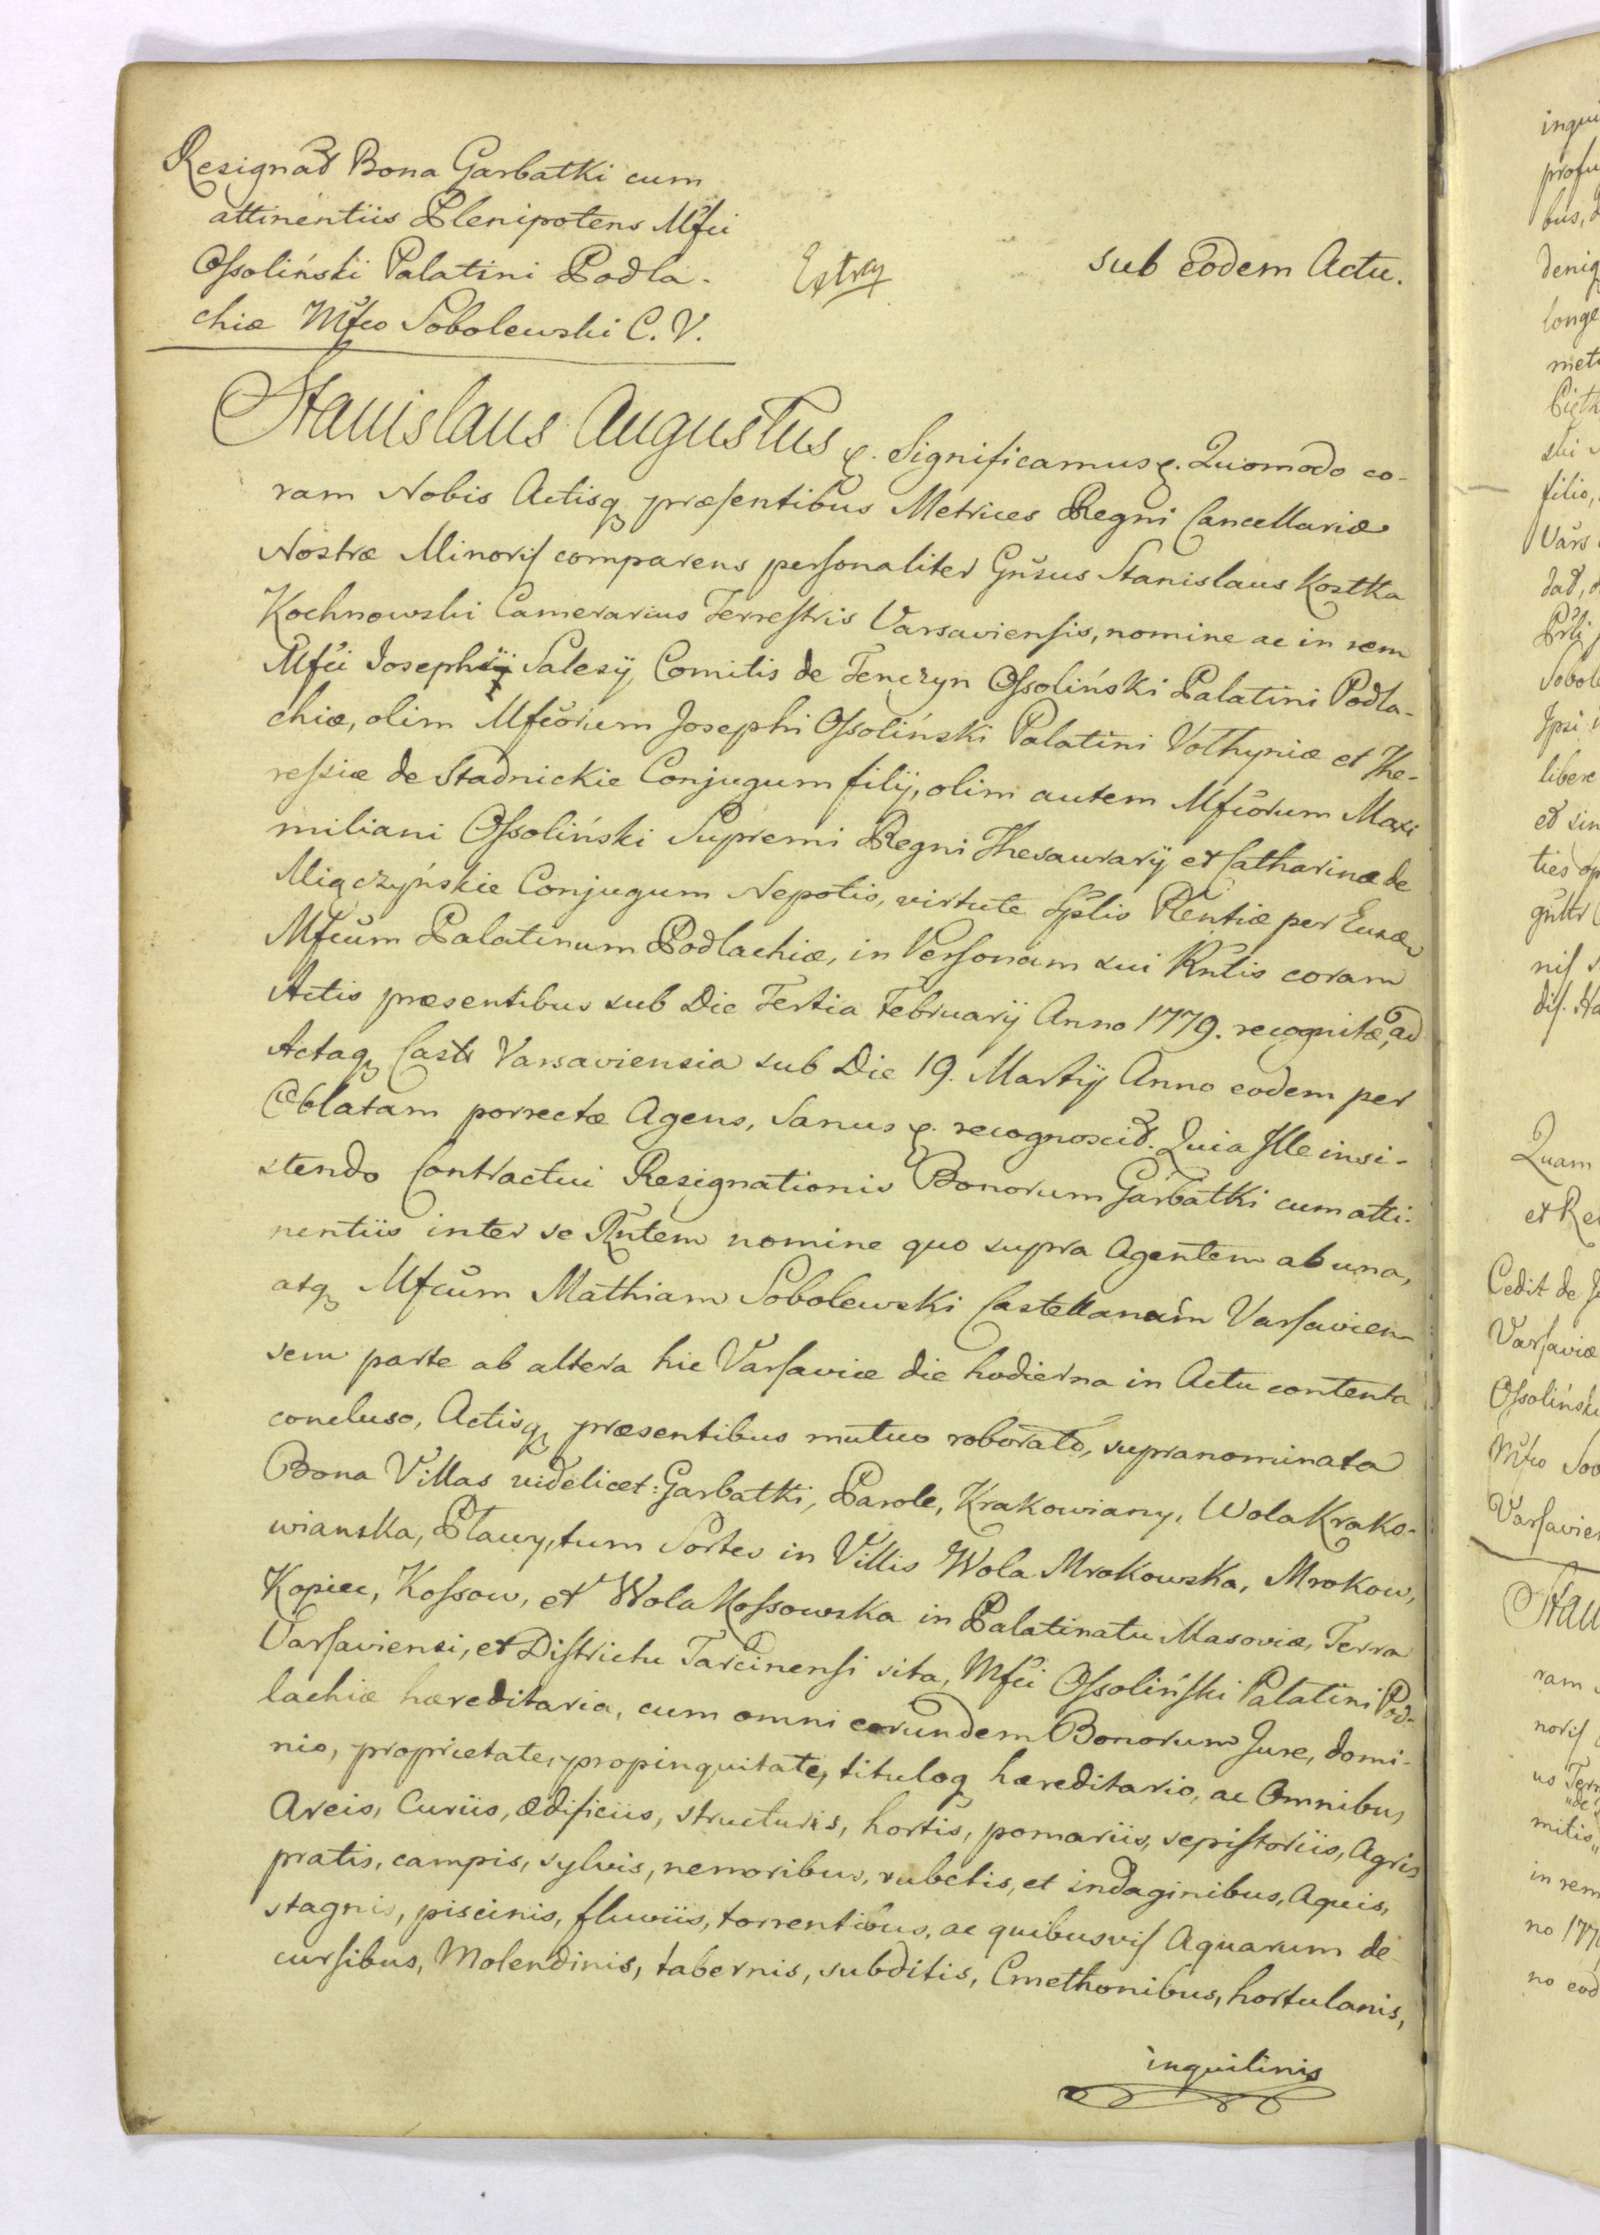 Resignat Bona Garbatki cum
attinentiis Plenipotens Mfci
Ossoliński Palatini Podla-
chiæ Mfco Sobolewski C. V.
Extray
sub Eodem Actu.
Stanislaus Augustus &. Significamus &. Quomodo co-
ram Nobis Actisq præsentibus Metrices Regni Cancellariæ
Nostræ Minoris comparens personaliter Gñsus Stanislaus Kostka
Kochnowski Camerarius Terrestris Varsaviensis, nomine ac in rem
Mfci Josephi Salesÿ Comitis de Tenczyn Ossoliński Palatini Podla-
chiæ, olim Mfcorum Josephi Ossoliński Palatini Volhyniæ et The-
ressiæ de Stadnickie Conjugum filÿ, olim autem Mfcorum Maxi
miliani Ossoliński Supremi Regni Thesaurarÿ et Catharinæ de
Miączyńskie Conjugum Nepotis, virtute Splis Plentiæ per Eundem
Mfcum Palatinum Podlachiæ, in Personam sui Rntis coram
Actis præsentibus sub Die Tertia Februarÿ Anno 1779. recognitæ, ad
Actaq Castr Varsaviensia sub Die 19. Martÿ Anno eodem per
Oblatam porrectæ Agens, Sanus &. recognoscit. Quia Ille insi-
stendo Contractui Resignationis Bonorum Garbatki cum atti-
nentiis inter se Rntem nomine quo supra Agentem ab una,
atq Mfcum Mathiam Sobolewski Castellanum Varsavien
sem parte ab altera hic Varsaviæ die hodierna in Actu contenta
concluso, Actisq præsentibus mutuo roborato, supranominata
Bona Villas videlicet: Garbatki, Parole, Krakowiany, Wola Krako-
wianska, Pławy, tum Sortes in Villis Wola Mrokowska, Mrokow,
Kopiec, Kossow, et Wola Kossowska in Palatinatu Masoviæ, Terra
Varsaviensi, et Districtu Tarcinensi sita, Mfci Ossoliński Palatini Pod-
lachiæ hæreditaria, cum omni eorundem Bonorum Jure, domi-
nio, proprietate, propinquitate, tituloq hæreditario, ac Omnibus
Areis, Curiis, ædificiis, structuris, hortis, pomariis, sepistoriis, Agris
pratis, campis, sylvis, nemoribus, rubetis, et indaginibus, Aquis,
stagnis, piscinis, fluviis, torrentibus, ac quibusvis Aquarum de-
cursibus, Molendinis, tabernis, subditis, Cmethonibus, hortulanis,
inquilinis